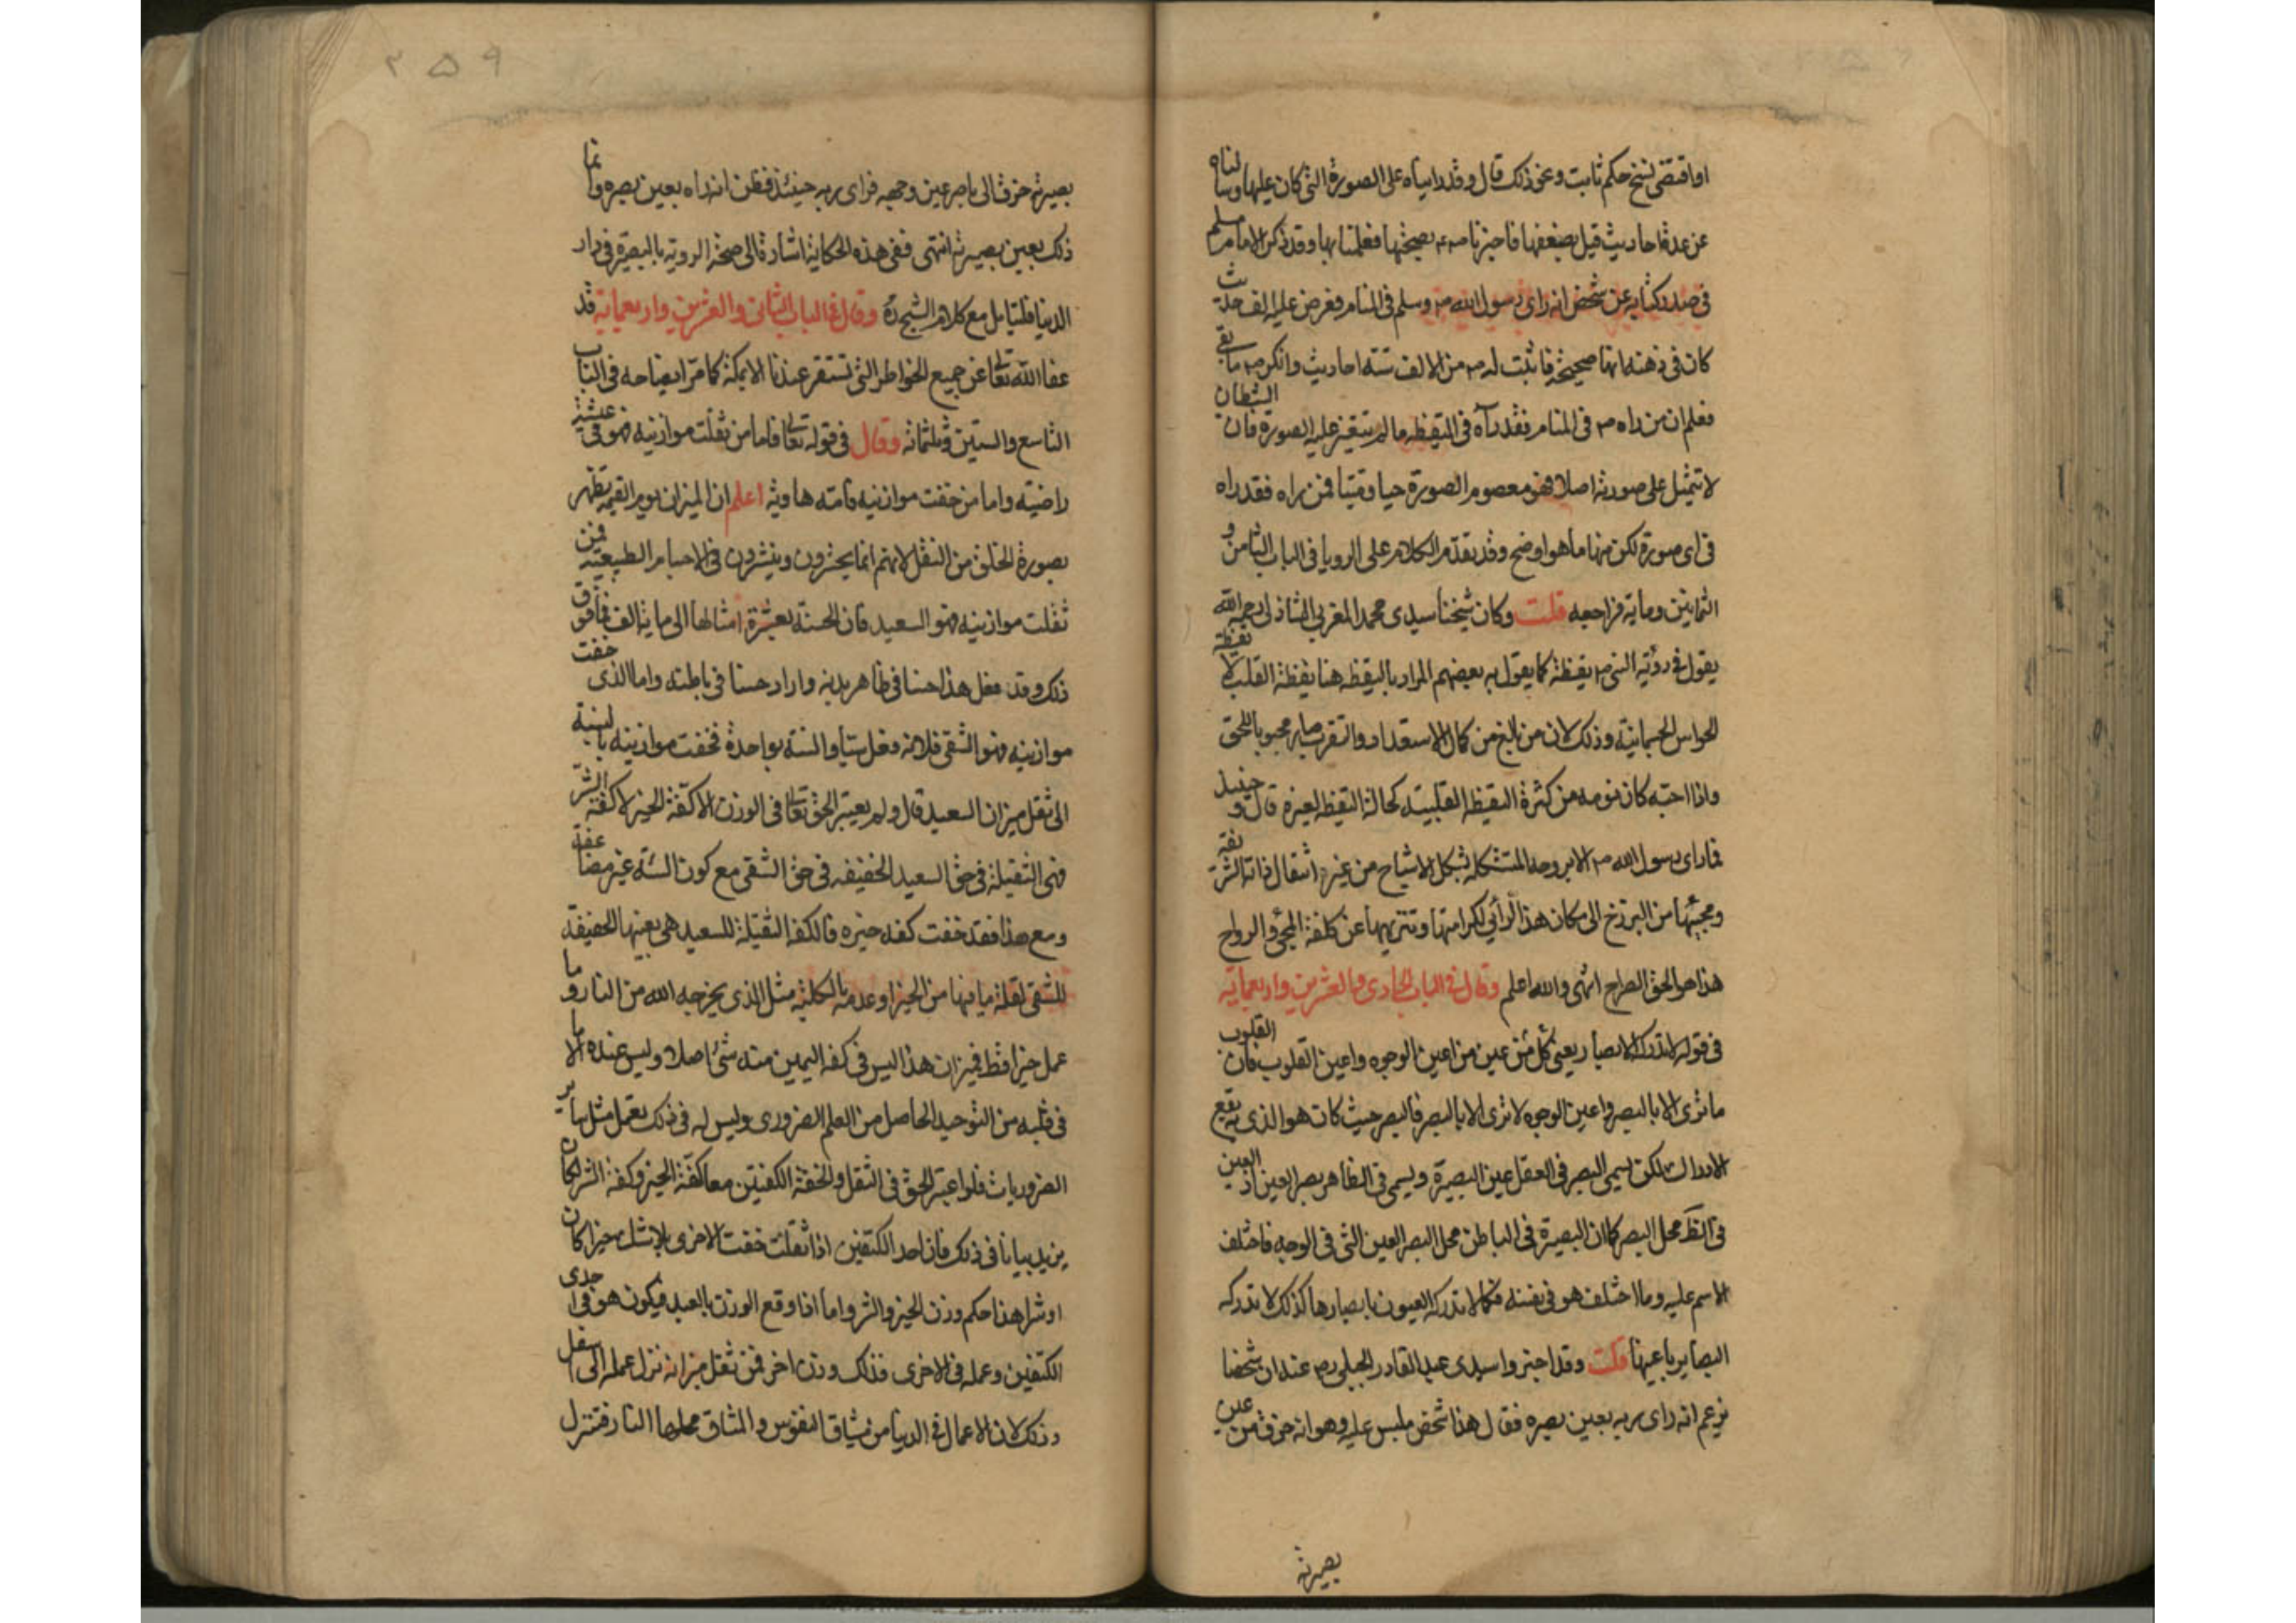 اواقتضى نسخ حكم ثابت ونحو ذلك قال وقد رايناه على الصورة التى كان عليها وسالناه
عن عدة احاديث قيل بضعفها فاخبرنا صم بصحتها فعلمنا بها وقد ذكر الامام مسلم
فى صدر كتابه عن شخص انه راى رسول الله صم وسلم فى المنام فعرض عليه الف حديث
كان فى ذهنه انها صحيحة فاثبت له صم من الالف ستة احاديث وانكر صم ما بقى
فعلم ان من راه صم فى المنام فقد رآه فى اليقظه ما لم تتغير عليه الصورة فان الشطان
لا تتمثل على صورته اصلا فهو معصوم الصورة حيا وميتا فمن راه فقد راه
فى اى صورة لكن منها ما هو اوضح وقد تقدم الكلام على الرويا فى الباب الثامن و
الثمانين ومايه فراجعه قلت وكان شيخنا سيدى محمد المغربى الشاذلى رحمه الله
يقول فى رؤية النبى صم يقظة كما يقول به بعضهم المراد باليقظه هنا يقظة القلب لا يقظة
الحواس الجسمانية وذلك لان من بالغ من كمال الاستعداد والتقرب صار محبوبا للحق
واذا احبه كان نومه من كثرة اليقظه القلبيه كحالة اليقظه لغيره قال و حينئذ
فما راى رسول الله صم الا بروحه المتشكله بشكل الاشباح من غير انتقال ذاته الشريفة
ومجيئها من البرزخ الى مكان هذا الرائي لكرامتها وتنزيهها عن كلفة المجئ والرواح
هذا هو الحق الصراح انتهى والله اعلم وقال فى الباب الحادى والعشرين واربعمايه
فى قوله لا تدركه الابصار يعنى كل من عين من اعين الوجوه واعين القلوب فان القلوب
ما ترى الا بالبصر واعين الوجوه لا ترى الا بالبصر فالبصر حيث كان هو الذى به يقع
الادراك لكن يسمى البصر فى العقل عين البصيرة ويسمى فى الظاهر بصر العين اذ العين
فى الظ محل البصر كما ان البصيرة فى الباطن محل البصر العين التى فى الوجه فاختلف
الاسم عليه وما اختلف هو فى نفسه فكما لا تدركه العيون بابصارها كذلك لا تدركه
البصاير باعينها قلت وقد اخبروا سيدى عبد القادر الجيلى رضى عنه ان شخصا
يزعم انه راى ربه بعين بصره فقال هذا شخص ملبس عليه وهو انه خرق من عين
بصيرته
٢٥٩
بصيرته خرق الى باصر عين وجهه فراى ربه حينئذ فظن انه راه بعين بصره وانما
ذلك بعين بصيرته انتهى ففى هذه الحكاية اشارة الى صحة الروية بالبصيرة فى دار
الدنيا فليتامل مع كلام الشيخ ره وقال فى الباب الثانى والعشرين واربعماية قد
عفا الله تعالى عن جميع الخواطر التى تستقر عندنا الا بمكة كما مر ايضاحه فى الباب
التاسع والستين وثلثمائه وقال فى قوله تعالى فاما من ثقلت موازينه فهو فى عيشة
راضيه واما من خفت موازينه فامه هاويه اعلم ان الميزان يوم القيمه يظهر
بصورة الخلق من الثقل لانهم انما يحشرون وينشرون فى الاجسام الطبيعيه فمن
ثقلت موازينه فهو السعيد فان الحسنة بعشرة امثالها الى ماية الف فما فوق
ذلك وقد فعل هذا حسنا فى ظاهر بدنه واراد حسنا فى باطنه واما الذى خفت
موازينه فهو الشقى فلانه فعل سيأ والسئه بواحدة فخفت موازينه بالنسبة
الى ثقل ميزان السعيد قال ولم يعتبر الحق تعالى فى الوزن الا كفة الخير لا كفة الشر
فهى الثقيلة فى حق السعيد الخفيفه فى حق الشقى مع كون السئة غير مضاعفة
ومع هذا فقد خفت كفه خيره فالكفه الثقيلة للسعيد هى بعينها الخفيفة
للشقى لقلة ما فيها من الخير او عدمه بالكلية مثل الذى يخرجه الله من النار وما
عمل خيرا قط فميزان هذا ليس فى كفه اليمين منه شئ اصلا وليس عنده الا ما
فى قلبه من التوحيد الحاصل من العلم الضرورى وليس له فى ذلك تعمل مثل ساير
الضروريات فلو اعتبر الحق فى الثقل والخفة الكفتين معا كفة الخير وكفة الشر لكان
يزيد بيانا فى ذلك فان احد الكفتين اذا ثقلت خفت الاخرى بلا شك خيرا كان
او شرا هذا حكم وزن الخير والشر واما اذا وقع الوزن بالعبد فيكون هو فى احدى
الكفتين وعمله فى الاخرى فذلك وزن اخر فمن ثقل ميزانه نزل عمله الى اسفل
وذلك لان الاعمال فى الدنيا من مشاق النفوس والمشاق محلها النار فتنزل